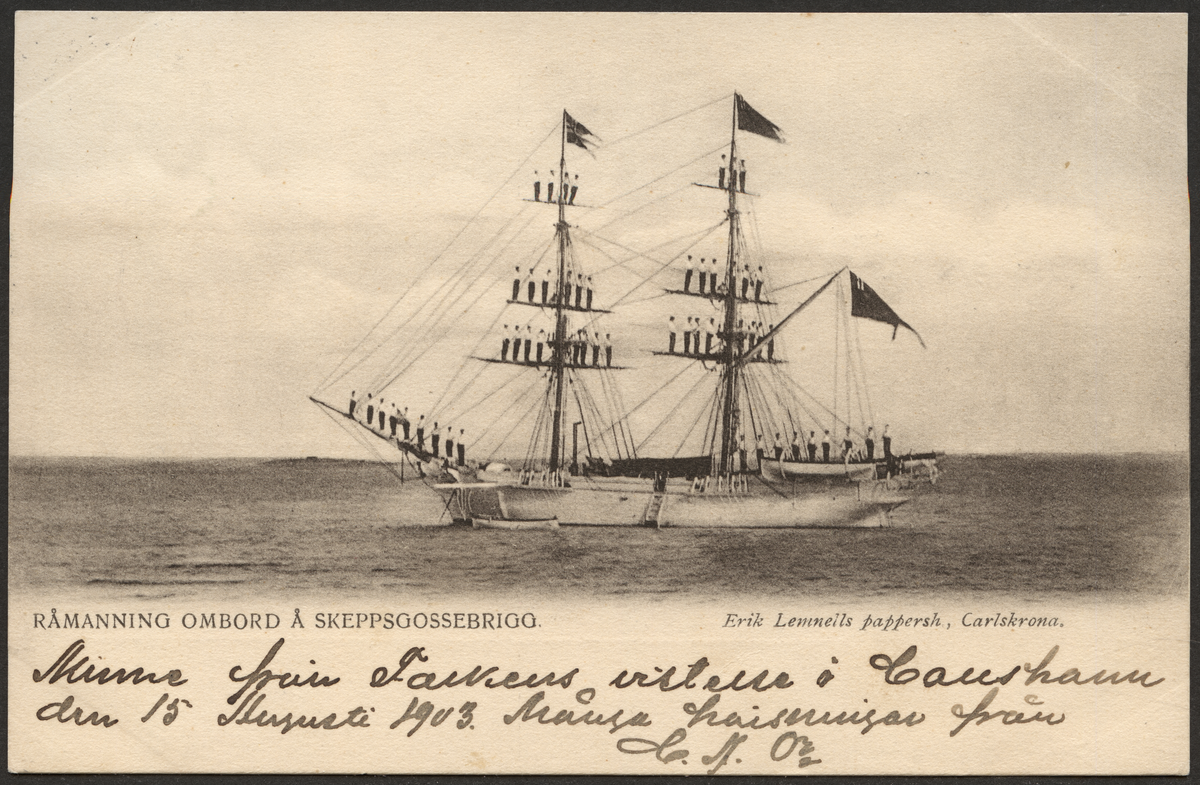 RÅMANNING OMBORD Å SKEPPSGOSSEBRIGG.
Erik Lemnells pappersh, Carlskrona.
Minne från Falkens vistelse i Carlshamn
den 15 Augusti 1903. Många hälsningar från
C. A.